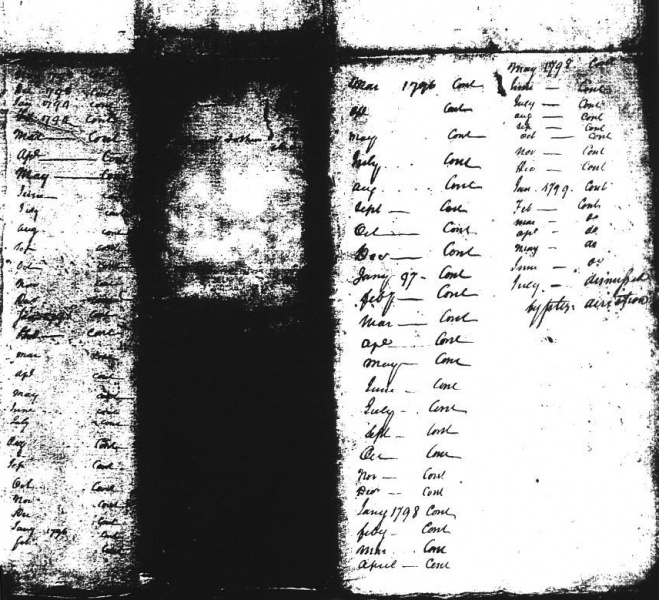 Dec 1793 Cont
Jany 1794 Cont
Feb 1794 Cont
Mar — Cont
Apl — Cont
May — Cont
June
July
aug Cont
Sep Cont
Oct Cont
Nov Cont
Dec Cont
Cont
Feb — Cont
mar
apl Cont
May Cont
June Cont
July Cont
Aug Cont
Sep Cont
Oct Cont
Nov Cont
Dec Cont
Jany 1796 Cont
feb Cont
Mar 1796 Cont
apl Cont
May Cont
July Cont
aug Cont
Sept — Cont
Oct — Cont
Dec — Cont
Jany 97 - Cont
feby — Cont
Mar — Cont
apl — Cont
May — Cont
June — Cont
July — Cont
Sept — Cont
Oct — Cont
Nov — Cont
Dec — Cont
Jany 1798 Cont
feby — Cont
Mar — Cont
April — Cont
May 1798 Cont
June — Cont
July — Cont
aug — Cont
sep — Cont
oct — Cont
Nov — Cont
Dec — Cont
Jan. 1799. Cont
Feb — Cont
mar — do
apl — do
May — do
June — do
July — dismissed
by ptr direction